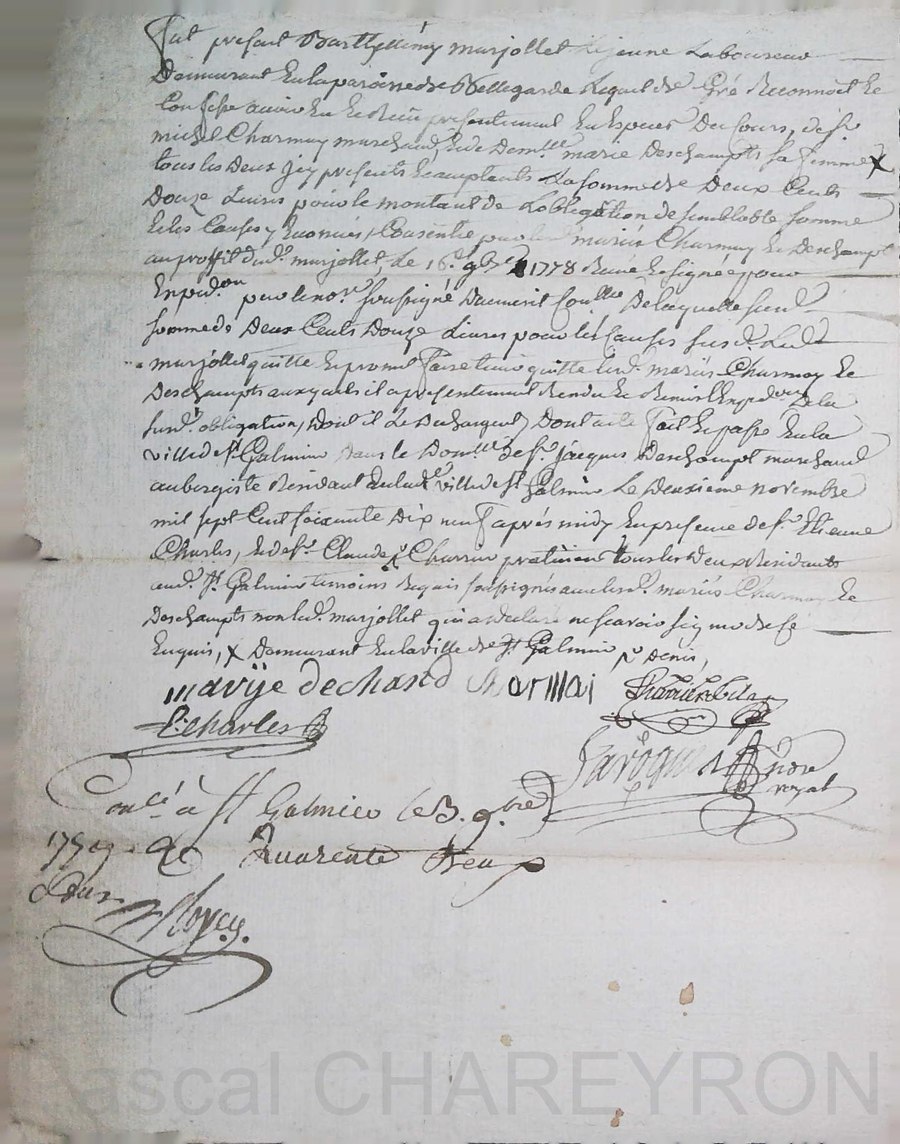 Fut présent Barthélémy marjollet le jeune Laboureur
Demeurant En la paroisse de Bellegarde Lequel de Gré Reconnoît Et
Confesse avoir Eu Et Reçu présentement En Espèces Du Cours, de Sr
michel Charmay marchand, Et de Demlle marie Deschampts Sa femme X
tous les Deux icy présents Et acceptants La somme de Deux Cents
Douze Livres pour le montant de Lobligation de semblable somme
Et les Causes y Enoncées, Consentie par les mariés Charmay Et Deschampt
au proffit dud. marjollet, le 16e 9bre 1778 Reçue Et signée pour
Expédon par le nore soussigné Dument Conllée De laquelle susd.
somme de Deux Cents Douze Livres pour les Causes susd. Led.
marjollet quitte Et promet faire tenir quitte lesd. mariés Charmay Et
Deschampts auxquels il a présentement Rendu Et Remis L'Expédon De la
susd. obligation, Dont il Les Décharge, Dont acte fait Et passé En la
ville de St Galmier Dans le Domlle de Sr jacques Deschampt marchand
aubergiste Résidant En lad. ville de St Galmier Le Deuxième novembre
mil sept Cent soixante Dix neuf après midy En présence de Sr Etienne
Charles, Et de Sr Claude Charrin praticien tous les Deux Résidants
aud. St Galmier témoins Requis soussignés avec lesd. mariés Charmay Et
Deschampts non led. marjollet qui a déclaré ne scavoir signer de ce
Enquis, X Demeurant En la ville de St Galmier
marije dechand Charmai
E. Charles
nore
royal
à St Galmier le 3. 9bre
Quarente